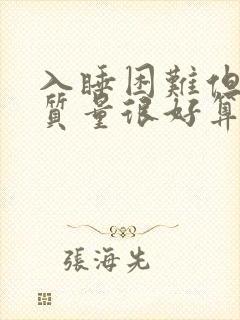 入睡困難但
質量很好算
張海先